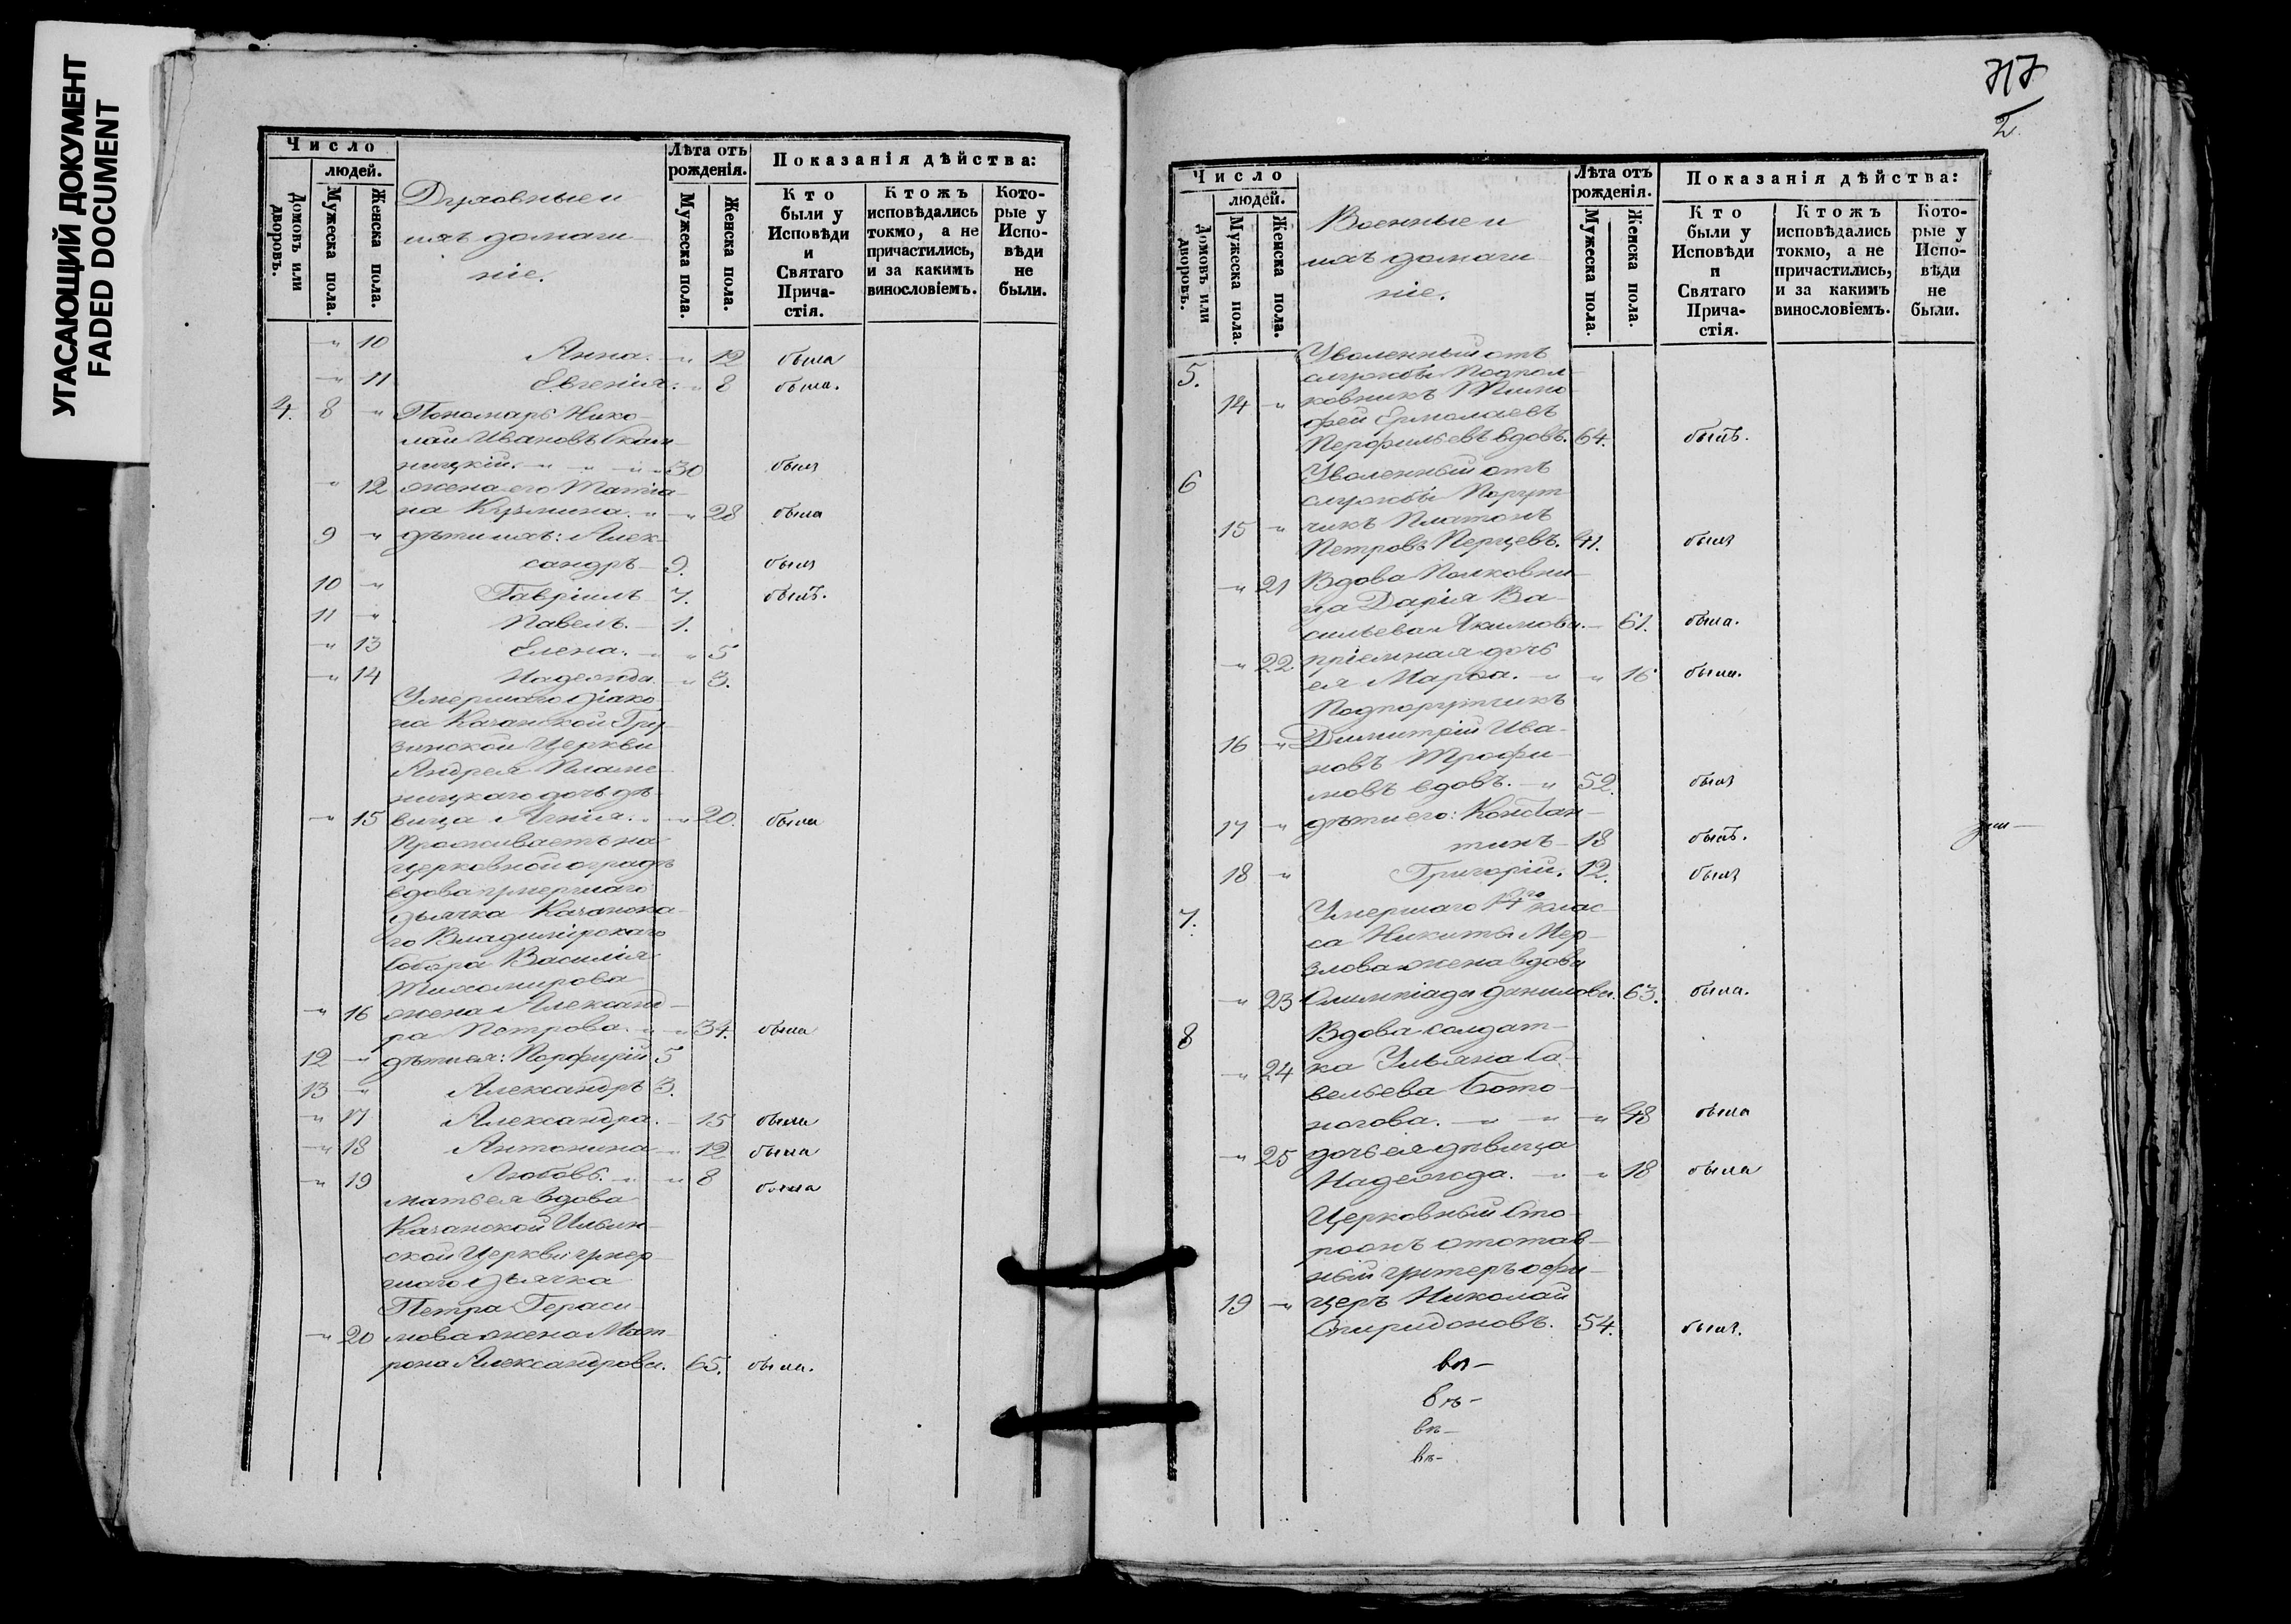 УГАСАЮЩИЙ ДОКУМЕНТ
FADED DOCUMENT
Число
людей.
Домовъ или дворовъ.
Мужеска пола.
Женска пола.
Духовные и
ихъ домаш-
ніе.
Лѣта отъ
рожденія.
Мужеска пола.
Женска пола.
Показанія дѣйства:
Кто
были у
Исповѣди
и
Святаго
Прича-
стія.
Ктожъ
исповѣдались
токмо, а не
причастились,
и за какимъ
винословіемъ.
Кото-
рые у
Испо-
вѣди
не
были.
" 10 Анна. " 12 была
" 11 Евгенія. " 8 была.
4. 8 " Пономарь Нико-
лай Ивановъ
ницкій. " " " 30 былъ
" 12 жена его Татіа-
на Кузмина. " " 28 была
9 " дѣти ихъ: Алек-
сандръ 9. былъ
10 " Гавріилъ 7. былъ.
11 " Павелъ. 1.
" 13 Елена. " " 5
" 14 Надежда. " 3.
Умершаго діако-
на Казанской Гру-
зинской Церкви
Андрея Пламе-
ницкаго дочь дѣ-
" 15 вица Агнія. " " 20. была
Проживаетъ на
церковной оградѣ
вдова умершаго
дьячка Казанска-
го Владимірскаго
Собора Василія
Тихомирова
" 16 жена Александ-
ра Петрова. " " 34. была
12 " дѣти ея: Порфирій 5
13 " Александръ 3.
" 17 Александра. 15 была
" 18 Антонина " 12 была
" 19 Любовь. " " 8 была
мать ея вдова
Казанской Ильин-
ской Церкви умер-
шаго дьячка
Петра Гераси-
" 20 мова жена Мат-
рона Александрова. 65. была.
717
2
Число
людей.
Домовъ или дворовъ.
Мужеска пола.
Женска пола.
Военные и
ихъ домаш-
ніе.
Лѣта отъ
рожденія.
Мужеска пола.
Женска пола.
Показанія дѣйства:
Кто
были у
Исповѣди
и
Святаго
Прича-
стія.
Ктожъ
исповѣдались
токмо, а не
причастились,
и за какимъ
винословіемъ.
Кото-
рые у
Испо-
вѣди
не
были.
Уволенный отъ
5. службы Подпол-
14 " ковникъ Тимо-
фей Ермолаевъ
Перфильевъ вдовъ. 64. былъ.
6 Уволенный отъ
службы Порут-
15 " чикъ Платонъ
Петровъ Перцевъ. 41. былъ
" 21 Вдова Полковни-
ца Дарія Ва-
сильева Акимова. 61. была.
" 22 пріемная дочь
ея Марѳа. " " 16 была.
Подпоручикъ
16 " Димитрій Ива-
новъ Трофи-
мовъ вдовъ. " 52. былъ
17 " дѣти его: Констан-
тинъ 18 былъ.
18 " Григорій. 12. былъ
7. Умершаго 14го клас-
са Никиты Мер-
злова жена вдова
" 23 Олимпіада Данилова. 63. была.
8 Вдова солдат-
" 24 ка Ульяна Са-
вельева Бото-
ногова. " " " 48 была
" 25 дочь ея дѣвица
Надежда. " " 18 была
Церковный Сто-
рожъ отстав-
ный унтеръ офи-
19 " церъ Николай
Спиридоновъ. 54. былъ.